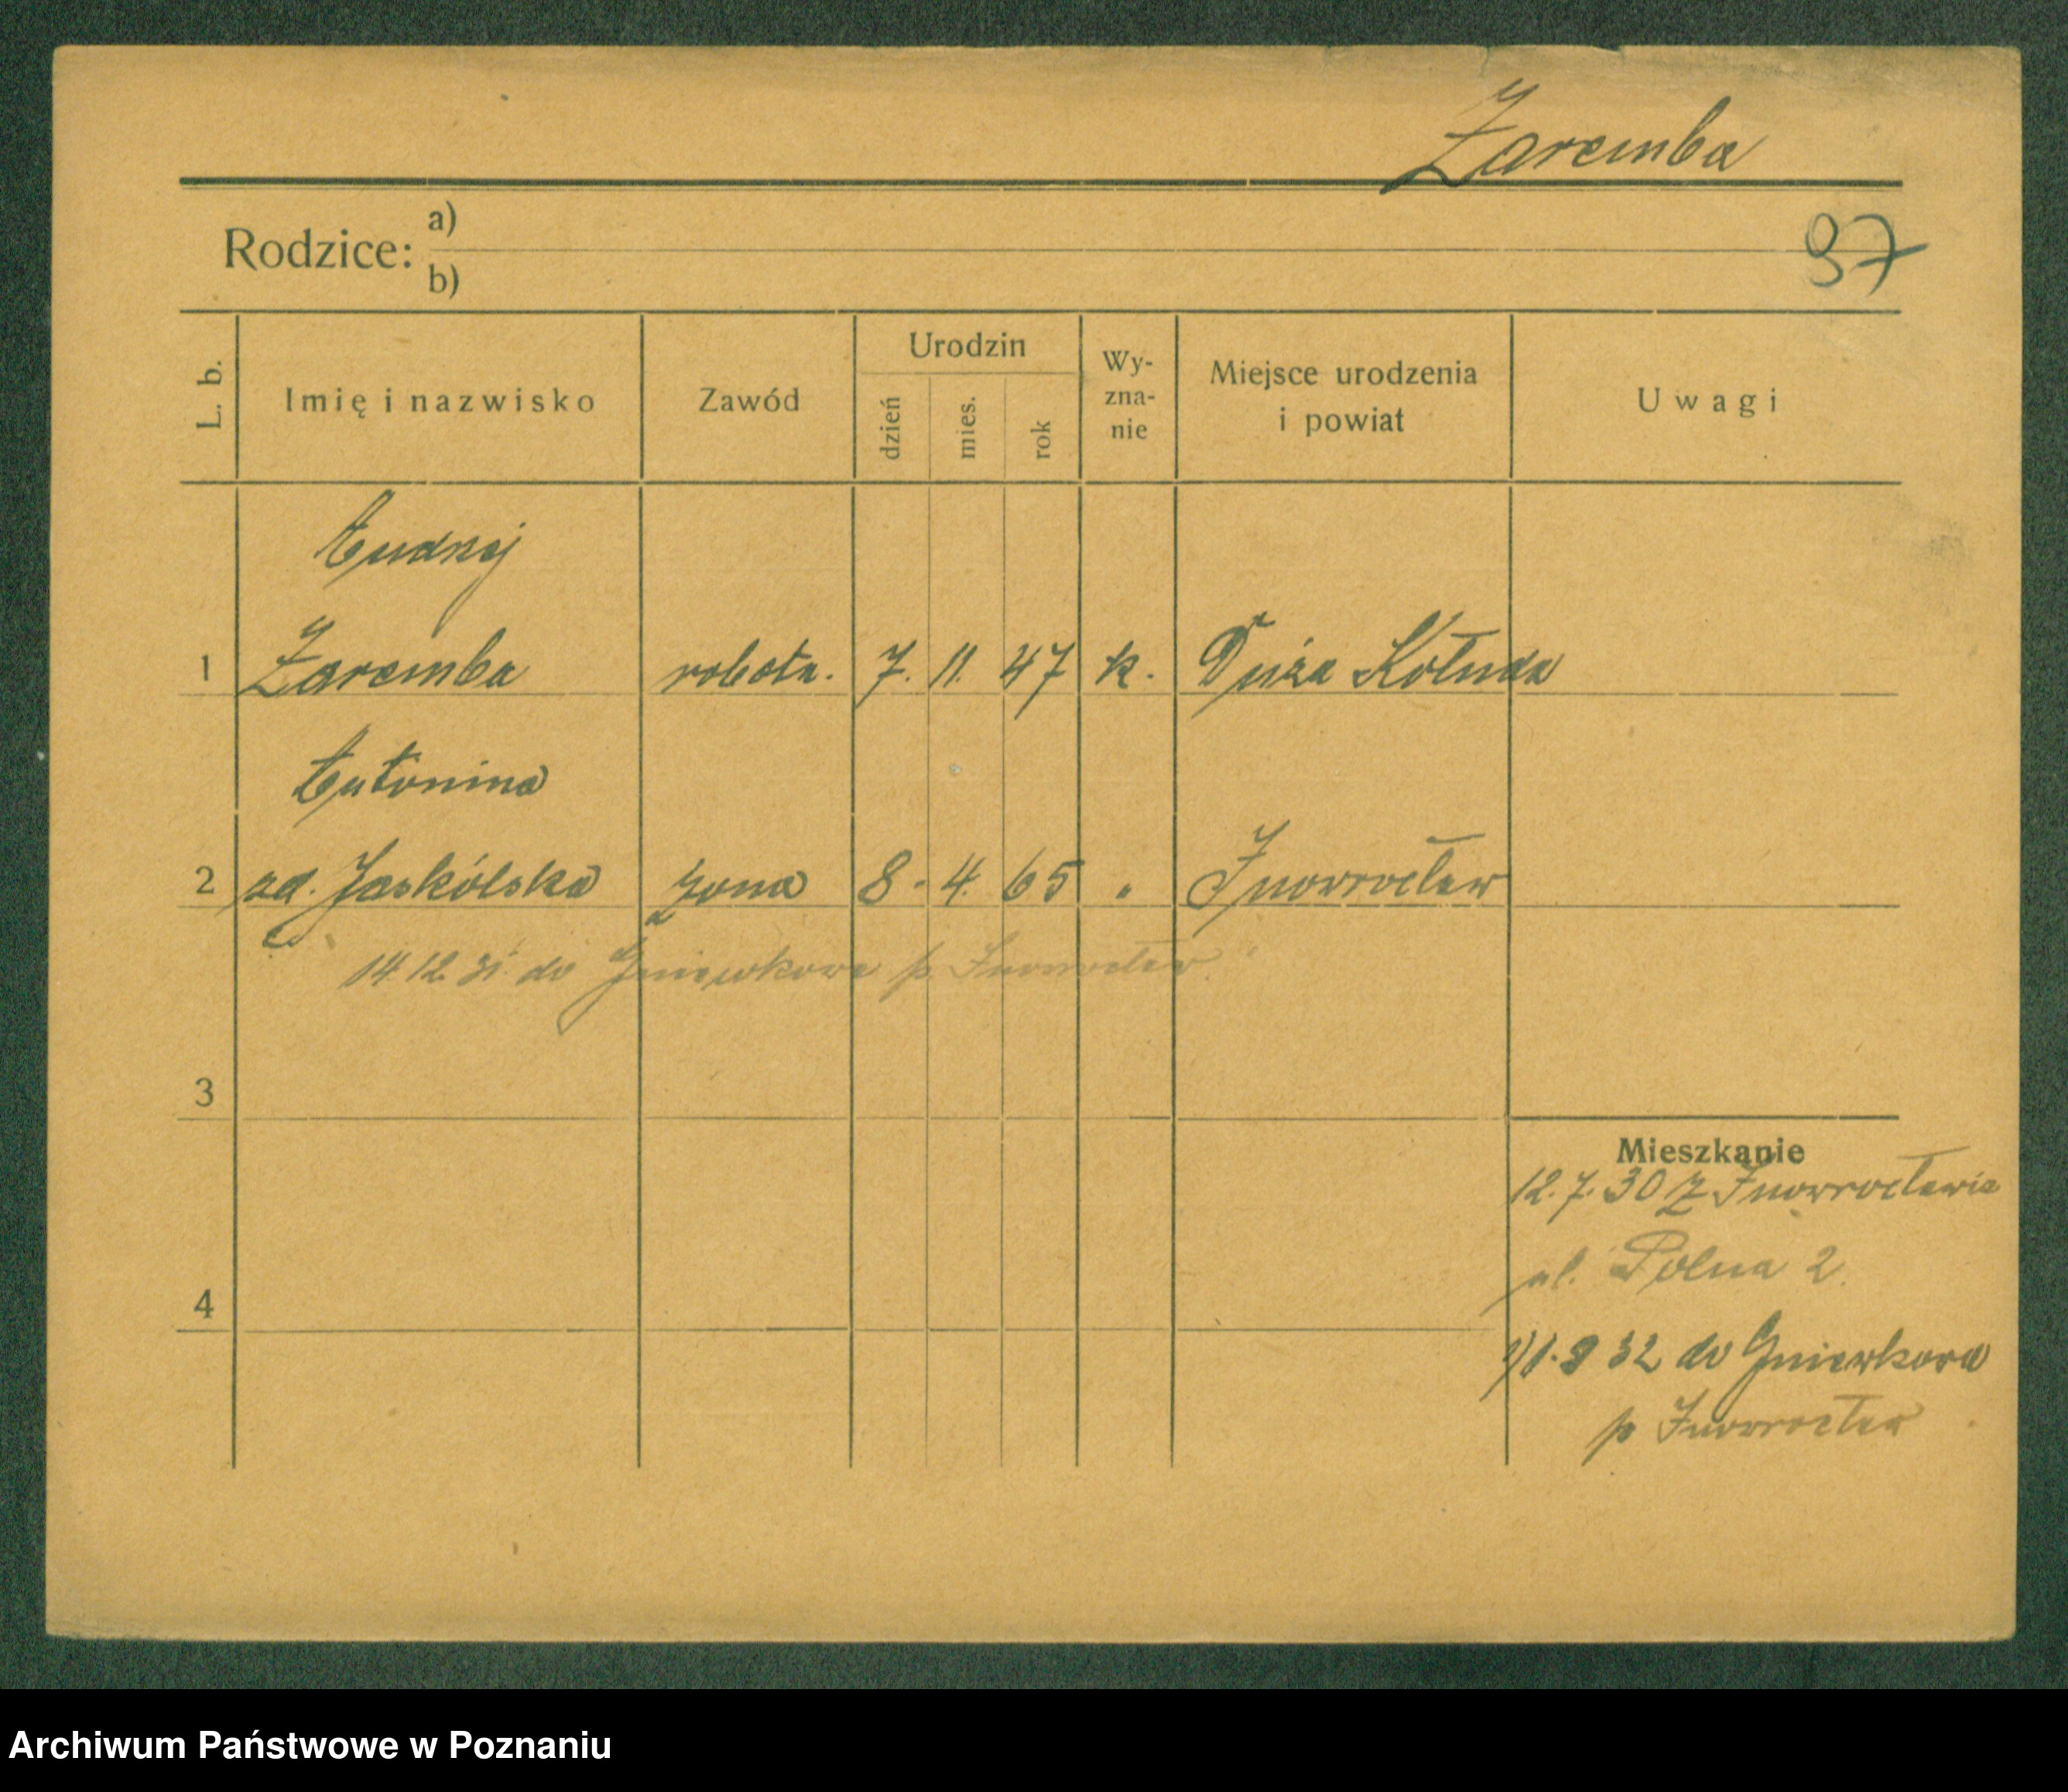 Zaremba
97
Rodzice: a)
b)
L. b. Imię i nazwisko Zawód Urodzin dzień mies. rok Wy-zna-nie Miejsce urodzenia i powiat Uwagi
Andrzej
1 Zaremba robotn. 7. 11. 47 k. Duża Kołuda
Antonina
2 zd. Jaskólska żona 8. 4. 65 " Inowrocław
14.12.31 do Gniewkowa p. Inowrocław
3
Mieszkanie
12.7.30 z Inowrocławia
ul. Polna 2.
4
1.9 32 do Gniewkowa
p Inowrocław
Archiwum Państwowe w Poznaniu